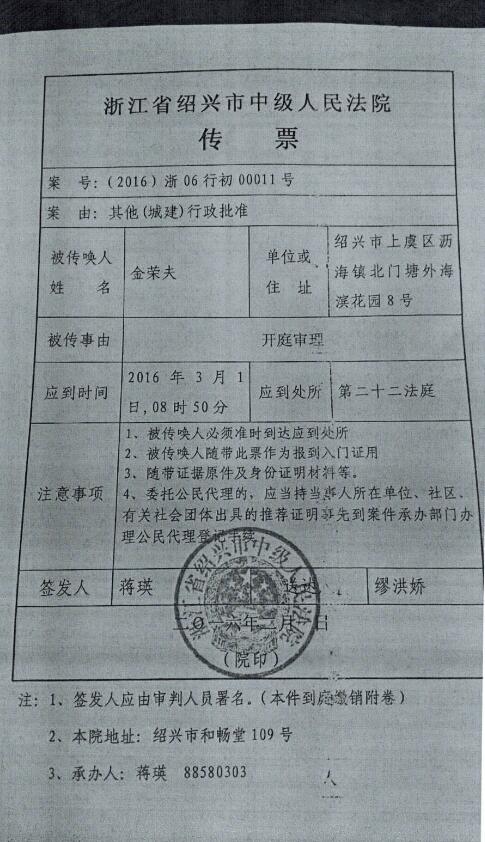 浙江省绍兴市中级人民法院
传 票
案 号：（2016）浙 06 行初 00011 号
案 由：其他(城建)行政批准
被传唤人
姓 名
金荣夫
单位或
住 址
绍兴市上虞区沥
海镇北门塘外海
滨花园 8 号
被传事由
开庭审理
应到时间
2016 年 3 月 1
日,08 时 50 分
应到处所
第二十二法庭
注意事项
1、被传唤人必须准时到达应到处所
2、被传唤人随带此票作为报到入门证用
3、随带证据原件及身份证明材料等。
4、委托公民代理的，应当持当事人所在单位、社区、
有关社会团体出具的推荐证明事先到案件承办部门办
理公民代理登记手续
签发人
蒋瑛
送达
缪洪娇
二〇一六年二月 日
（院印）
浙江省绍兴市中级人民法院
注：1、签发人应由审判人员署名。（本件到庭缴销附卷）
2、本院地址：绍兴市和畅堂 109 号
3、承办人：蒋瑛 88580303
人